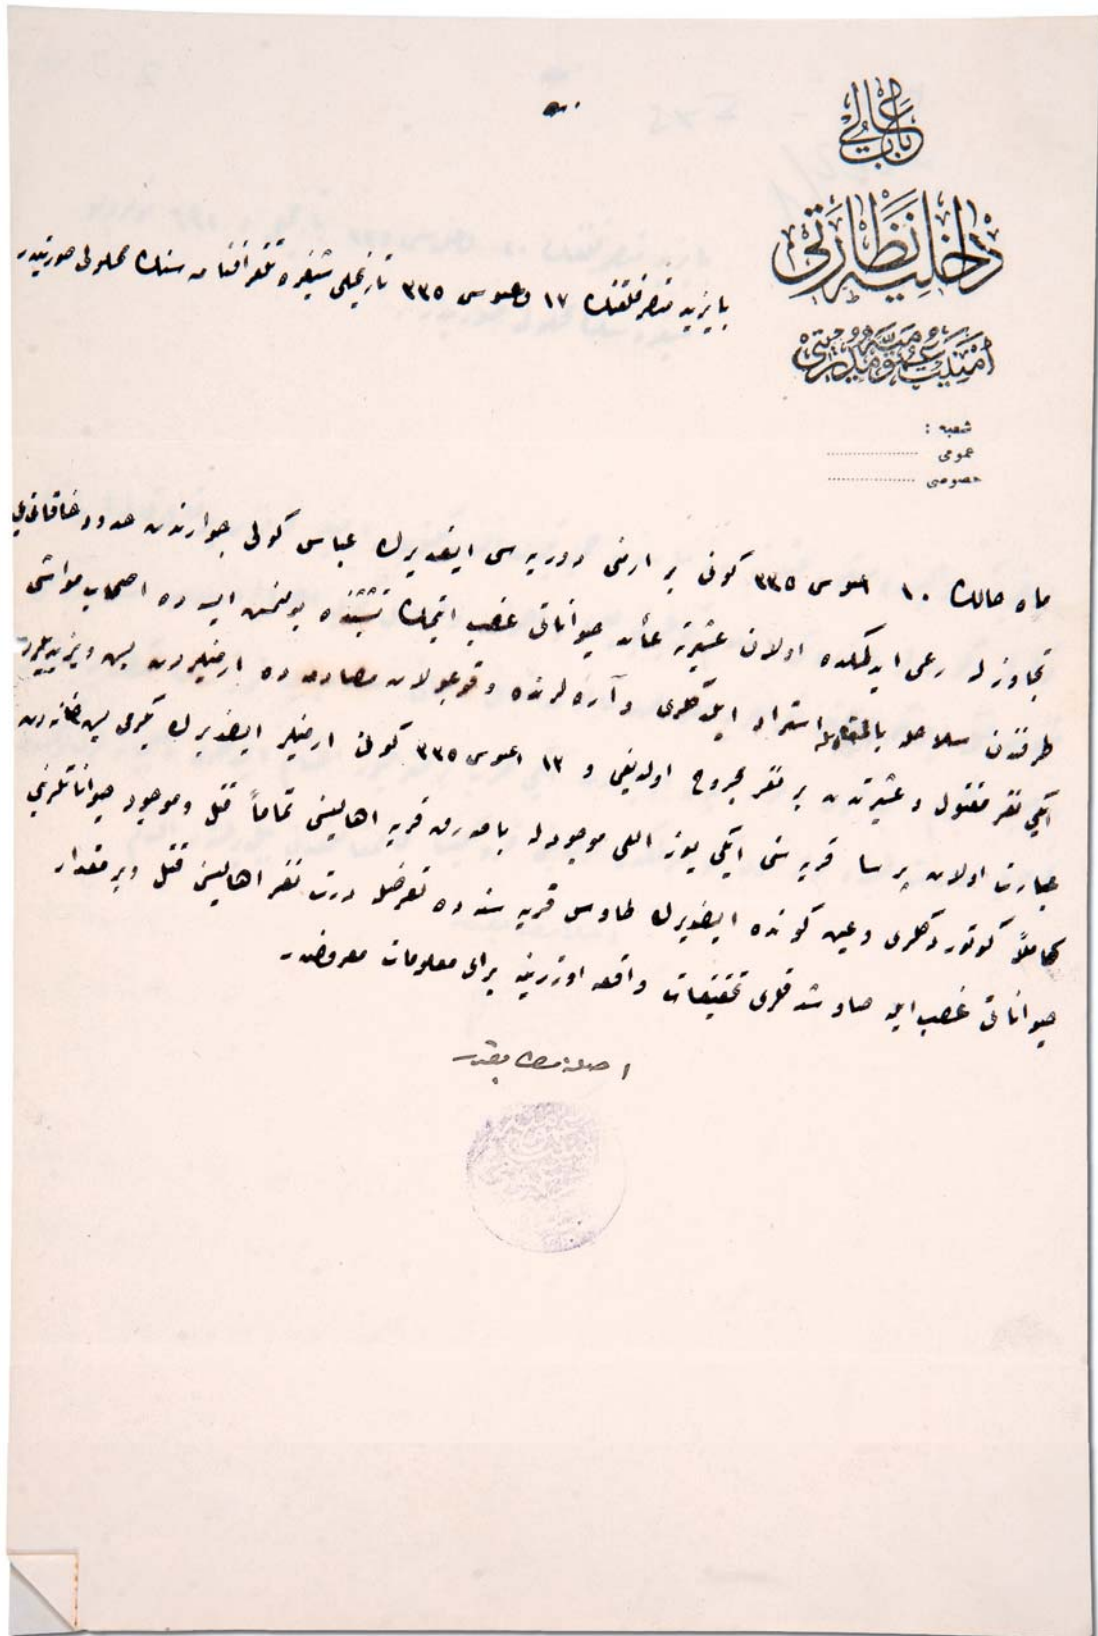 باب عالی
داخلیه نظارتی
امنیت عمومیه مدیریتی
شعبه :
عمومی
خصوصی
بایزید متصرفلغنك ١٧ اغستوس ٣٣٥ تاریخلی شیفره تلغرافنامه سنك محلولی صورتیدر
ماه حالك ١٠ اغستوس ٣٣٥ كونی بر ارمنی دوریه سی ایغدیرك عباس كولی جوارندن حدود خاقانی یی
تجاوزله رعی ایدلمكده اولان عشیرته عائد حیواناتی غصب ایتمك تشبثنده بولنمش ایسه ده اصحاب مواشی
طرفندن سلاحله بالمقابله استرداد ایلدكلری و آره لرنده وقوعبولان مصادمه ده ارمنیلردن بش و یزیدیلردن
ایكی نفر مقتول و عشیرتدن بر نفر مجروح اولدیغی و ١٣ اغستوس ٣٣٥ كونی ارمنیلر ایغدیرك یكرمی بش خانه دن
عبارت اولان پرسا قریه سنی ایكی یوز اللی موجودله باصه رق قریه اهالیسنی تماماً قتل و موجود حیواناتلرینی
كاملاً كوتوردكلری و عین كونده ایغدیرك طاوس قریه سنه ده تعرضله درت نفر اهالیسنی قتل و بر مقدار
حیواناتی غصب ایله صاوشدقلری تحقیقات واقعه اوزرینه برای معلومات معروضدر
اصلنه مطابقدر